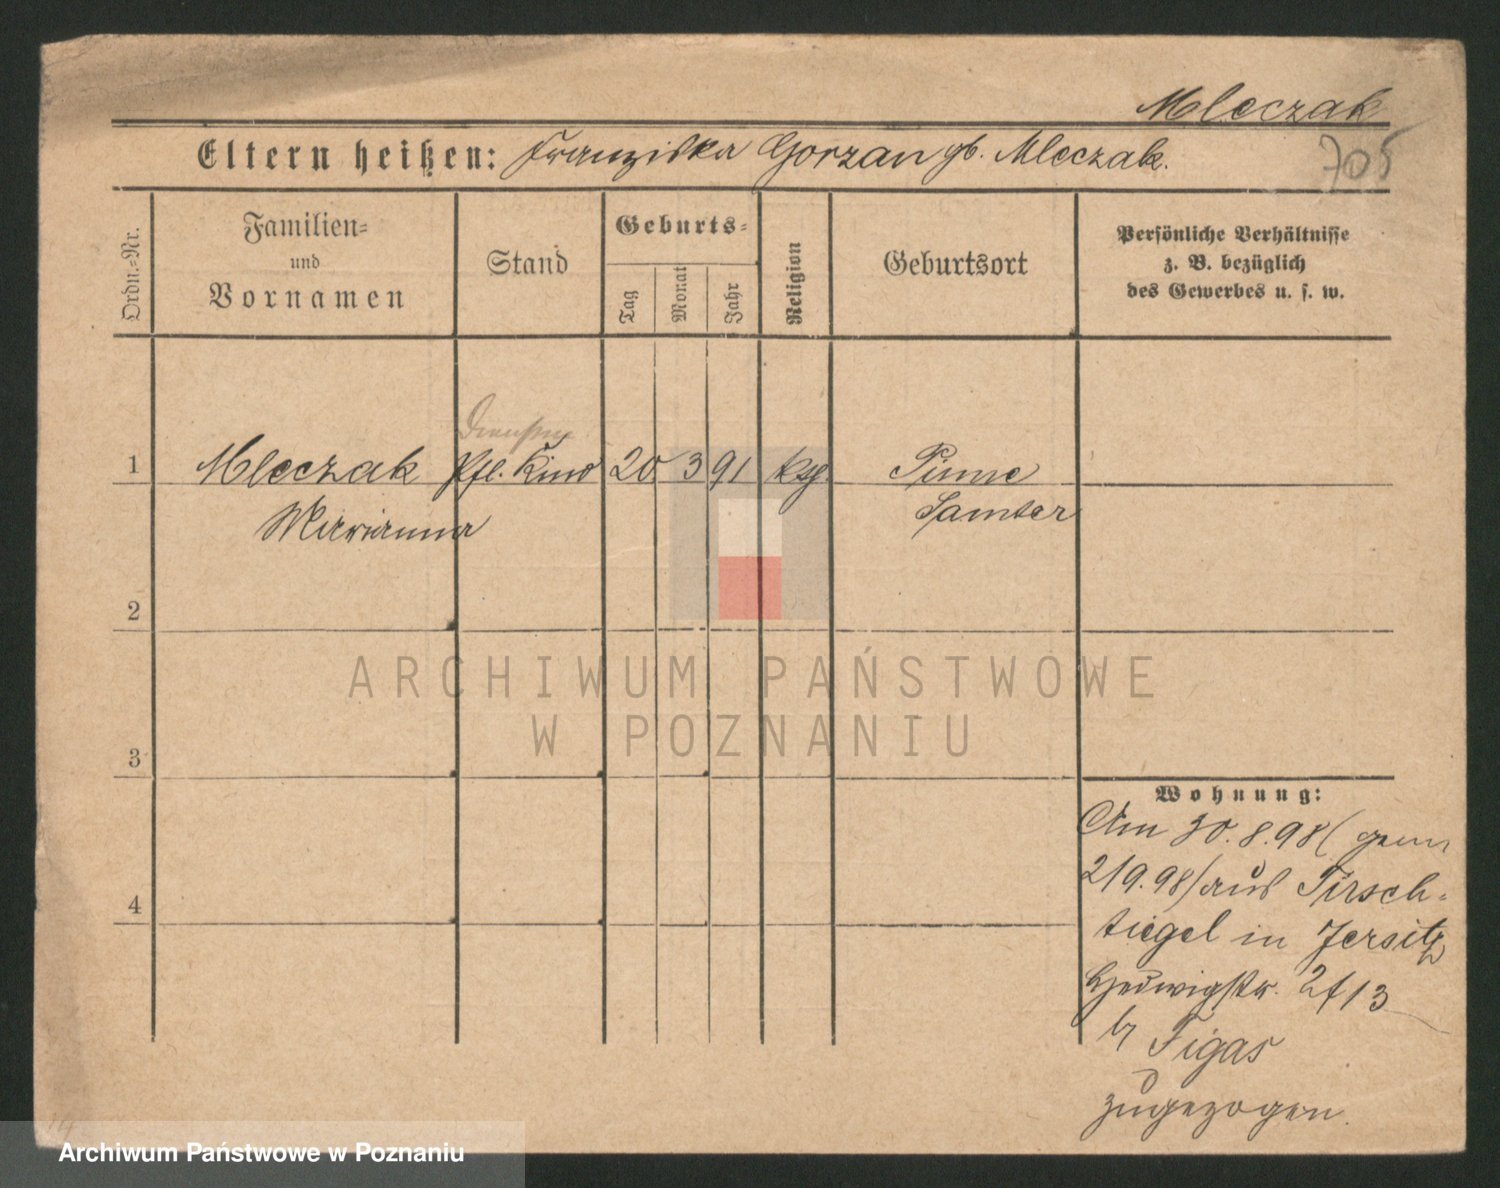 Mleczak
Eltern heißen: Franziska Gorzan gb. Mleczak.
705
Ordn.-Nr.
Familien-
und
Vornamen
Stand
Geburts-
Tag
Monat
Jahr
Religion
Geburtsort
Persönliche Verhältnisse
z. B. bezüglich
des Gewerbes u. s. w.
1 Mleczak Pfl. Kind 20 3 91 ktg. Pinne
Marianna Samter
2
3
4
Wohnung:
Am 30.8.98 (gem
2/9.98) aus Tirsch-
tiegel in Jersitz
Hedwigstr. 2f13
by Figas
zugezogen.
ARCHIWUM PAŃSTWOWE
W POZNANIU
Archiwum Państwowe w Poznaniu